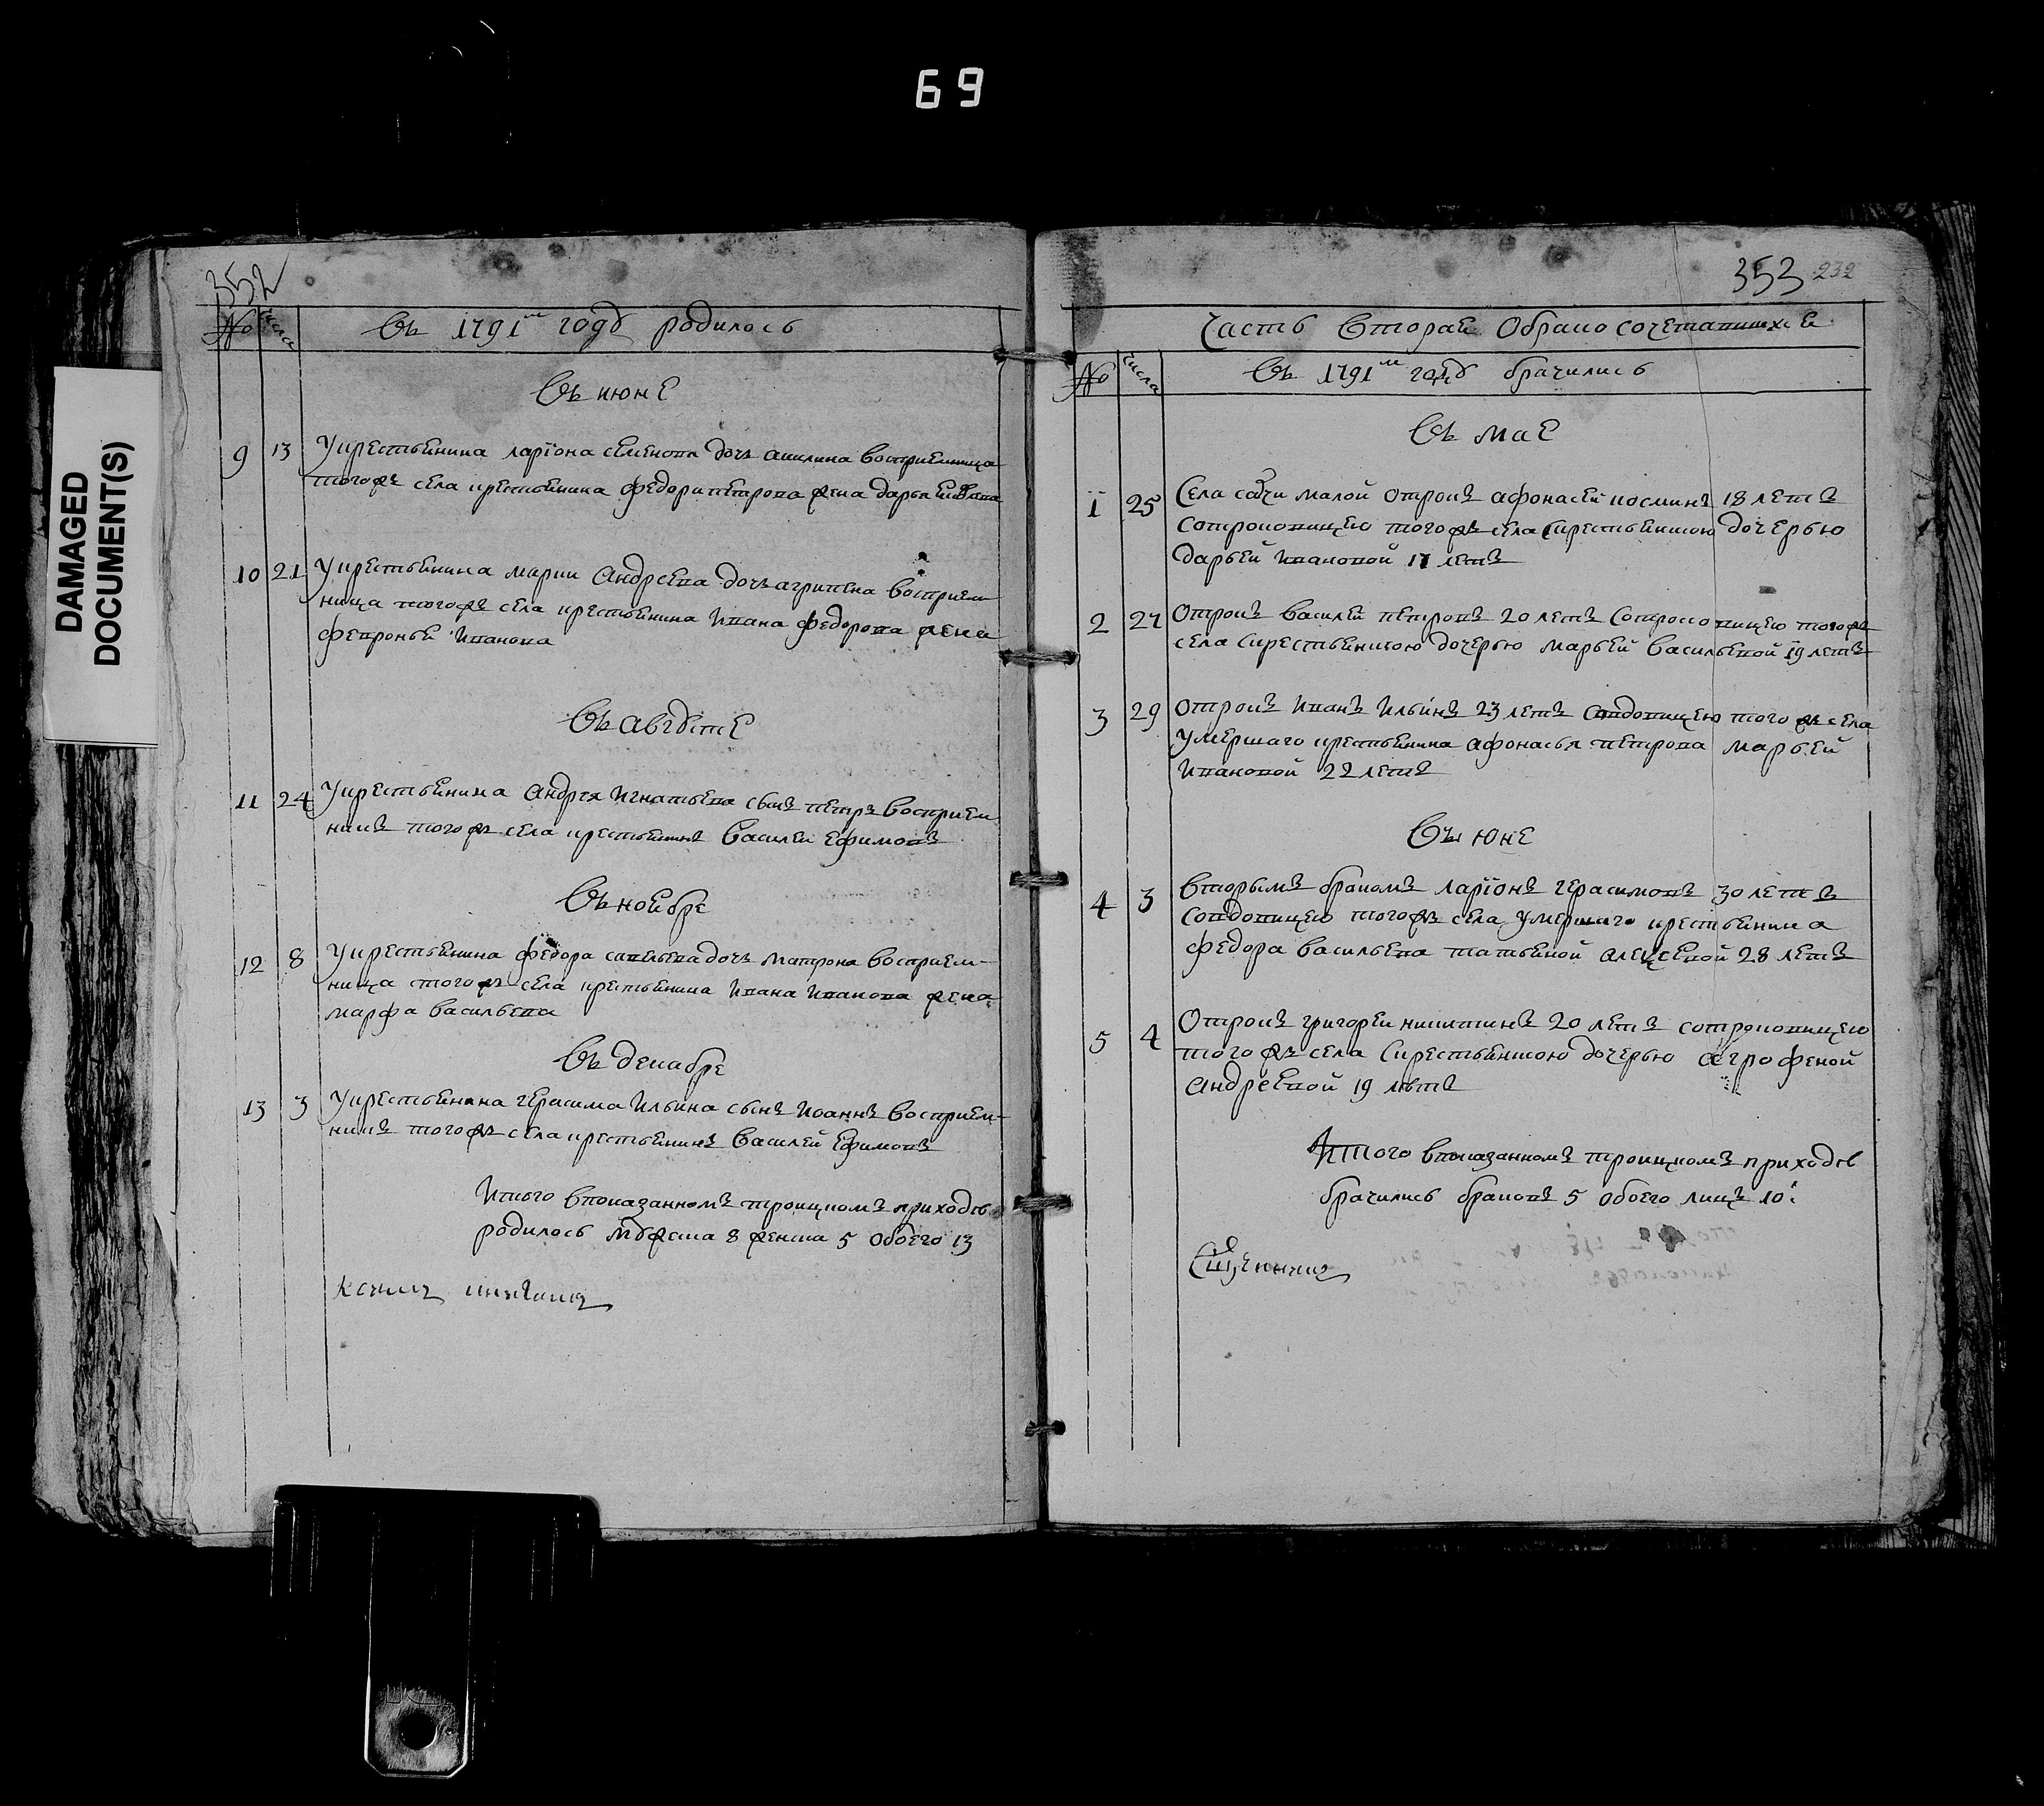 69
DAMAGED
DOCUMENT(S)
352
№ числа Въ 1791м году родилось
Въ июне
9 13 У крестьянина ларїона семенова дочь акилина восприемница
тогожъ села крестьянина федори петрова жена дарья
10 21 У крестьянина марки андреева дочь агрипена восприем
ница тогожъ села крестьянина ивана федорова жена
февронья иванова
Въ августе
11 24 У крестьянина андрея игнатьева сынъ петръ восприем
никъ тогожъ села крестьянинъ василеи ефимовъ
Въ ноябре
12 8 У крестьянина федора савельева дочь матрона восприем-
ница тогожъ села крестьянина ивана иванова жена
марфа васильева
Въ декабре
13 3 У крестьянина герасима ильина сынъ иоаннъ восприем-
никъ тогожъ села крестьянинъ василей ефимовъ
Итого впоказанномъ троицкомъ приходѣ
родилось мужеска 8 женска 5 обоего 13
353 232
Часть вторая обракосочетавшихся
№ числа Въ 1791м году брачились
Въ мае
1 25 Села малой отрокъ афонасей косминъ 18 летъ
сотроковицею тогожъ села скрестьянскою дочерью
дарьей ивановой 17 летъ
2 27 Отрокъ василей петровъ 20 летъ сотроковицею тогожъ
села скрестьянскою дочерью марьей васильевой 19 летъ
3 29 отрокъ иванъ ильинъ 23 летъ совдовицею того жъ села
умершаго крестьянина афонасья петрова марьей
ивановой 22 летъ
Въ июне
4 3 вторымъ бракомъ ларїонъ герасимовъ 30 летъ
совдовицею тогожъ села умершаго крестьянина
федора васильева татьяной алексевой 28 летъ
5 4 Отрокъ григореи никитинъ 20 летъ сотроковицею
тогожъ села скрестьянскою дочерью агрофеной
андреевой 19 лѣтъ
Итого впоказанномъ троицкомъ приходѣ
брачились браковъ 5 обоего лицъ 10: